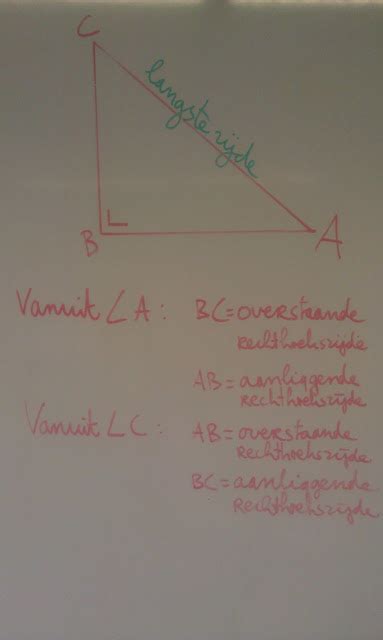 C
langste zijde
B
A
Vanuit ∠ A : BC = overstaande
rechthoekszijde
AB = aanliggende
rechthoekszijde
Vanuit ∠ C : AB = overstaande
rechthoekszijde
BC = aanliggende
rechthoekszijde